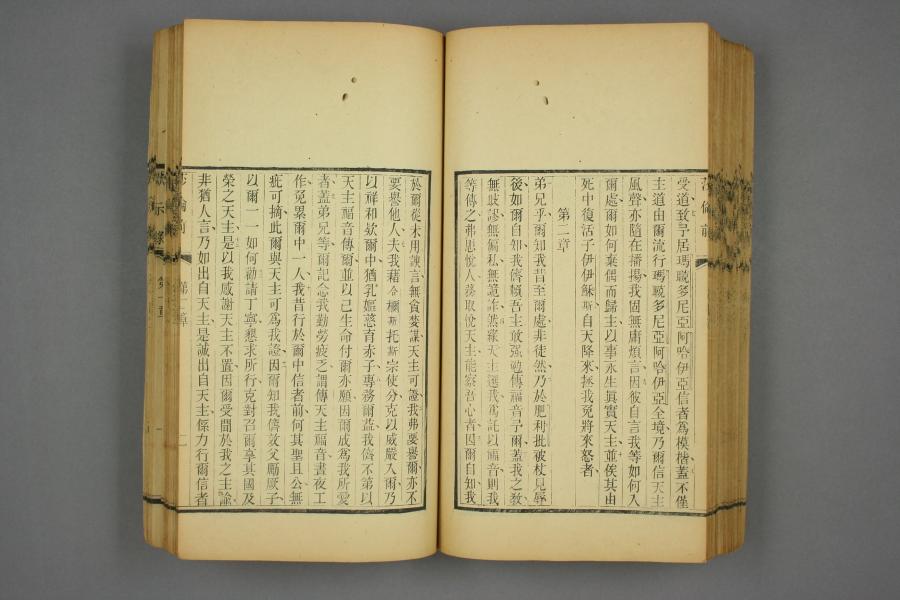 受道致予居瑪聡多尼亞阿哈伊亞信者爲模楷蓋不僅
主道由爾流行瑪聡多尼亞阿哈伊亞全境乃爾信天主
風聲亦隨在播揚我固無庸煩言因彼自言我等如何入
爾處爾如何棄偶而歸主以事永生眞實天主並俟其由
死中復活子伊伊穌斯自天降來拯我免將來怒者
第二章
弟兄乎爾知我昔至爾處非徒然乃於肥利批被杖見辱
後如爾自知我儕賴吾主敢强勉傳福音予爾蓋我之敎
無歧謬無偏私無詭詐然緣天主選我爲託以福音則我
等傳之弗思悅人務取悅天主能察吾心者因爾自知我
於爾從未用諛言無貪婪謀天主可證我弗要譽爾亦不
要譽他人夫我藉合欄斯托斯宗使分克以威嚴入爾乃
以祥和欵爾中猶乳嫗慈育赤子專務爾蓋我儕不第以
天主福音傳爾並以己生命付爾亦願因爾成爲我所愛
者蓋弟兄等爾記念我勤勞疲乏謂傳天主福音晝夜工
作免累爾中一人我昔行於爾中信者前何其聖且公無
疵可摘此爾與天主可爲我證因爾知我儕效父勵厥子
以爾一一如何勸請丁寧懇求所行克對召爾享其國及
榮之天主是以我感謝天主不置因爾受聞於我之主諭
非猶人言乃如出自天主是誠出自天主係力行爾信者